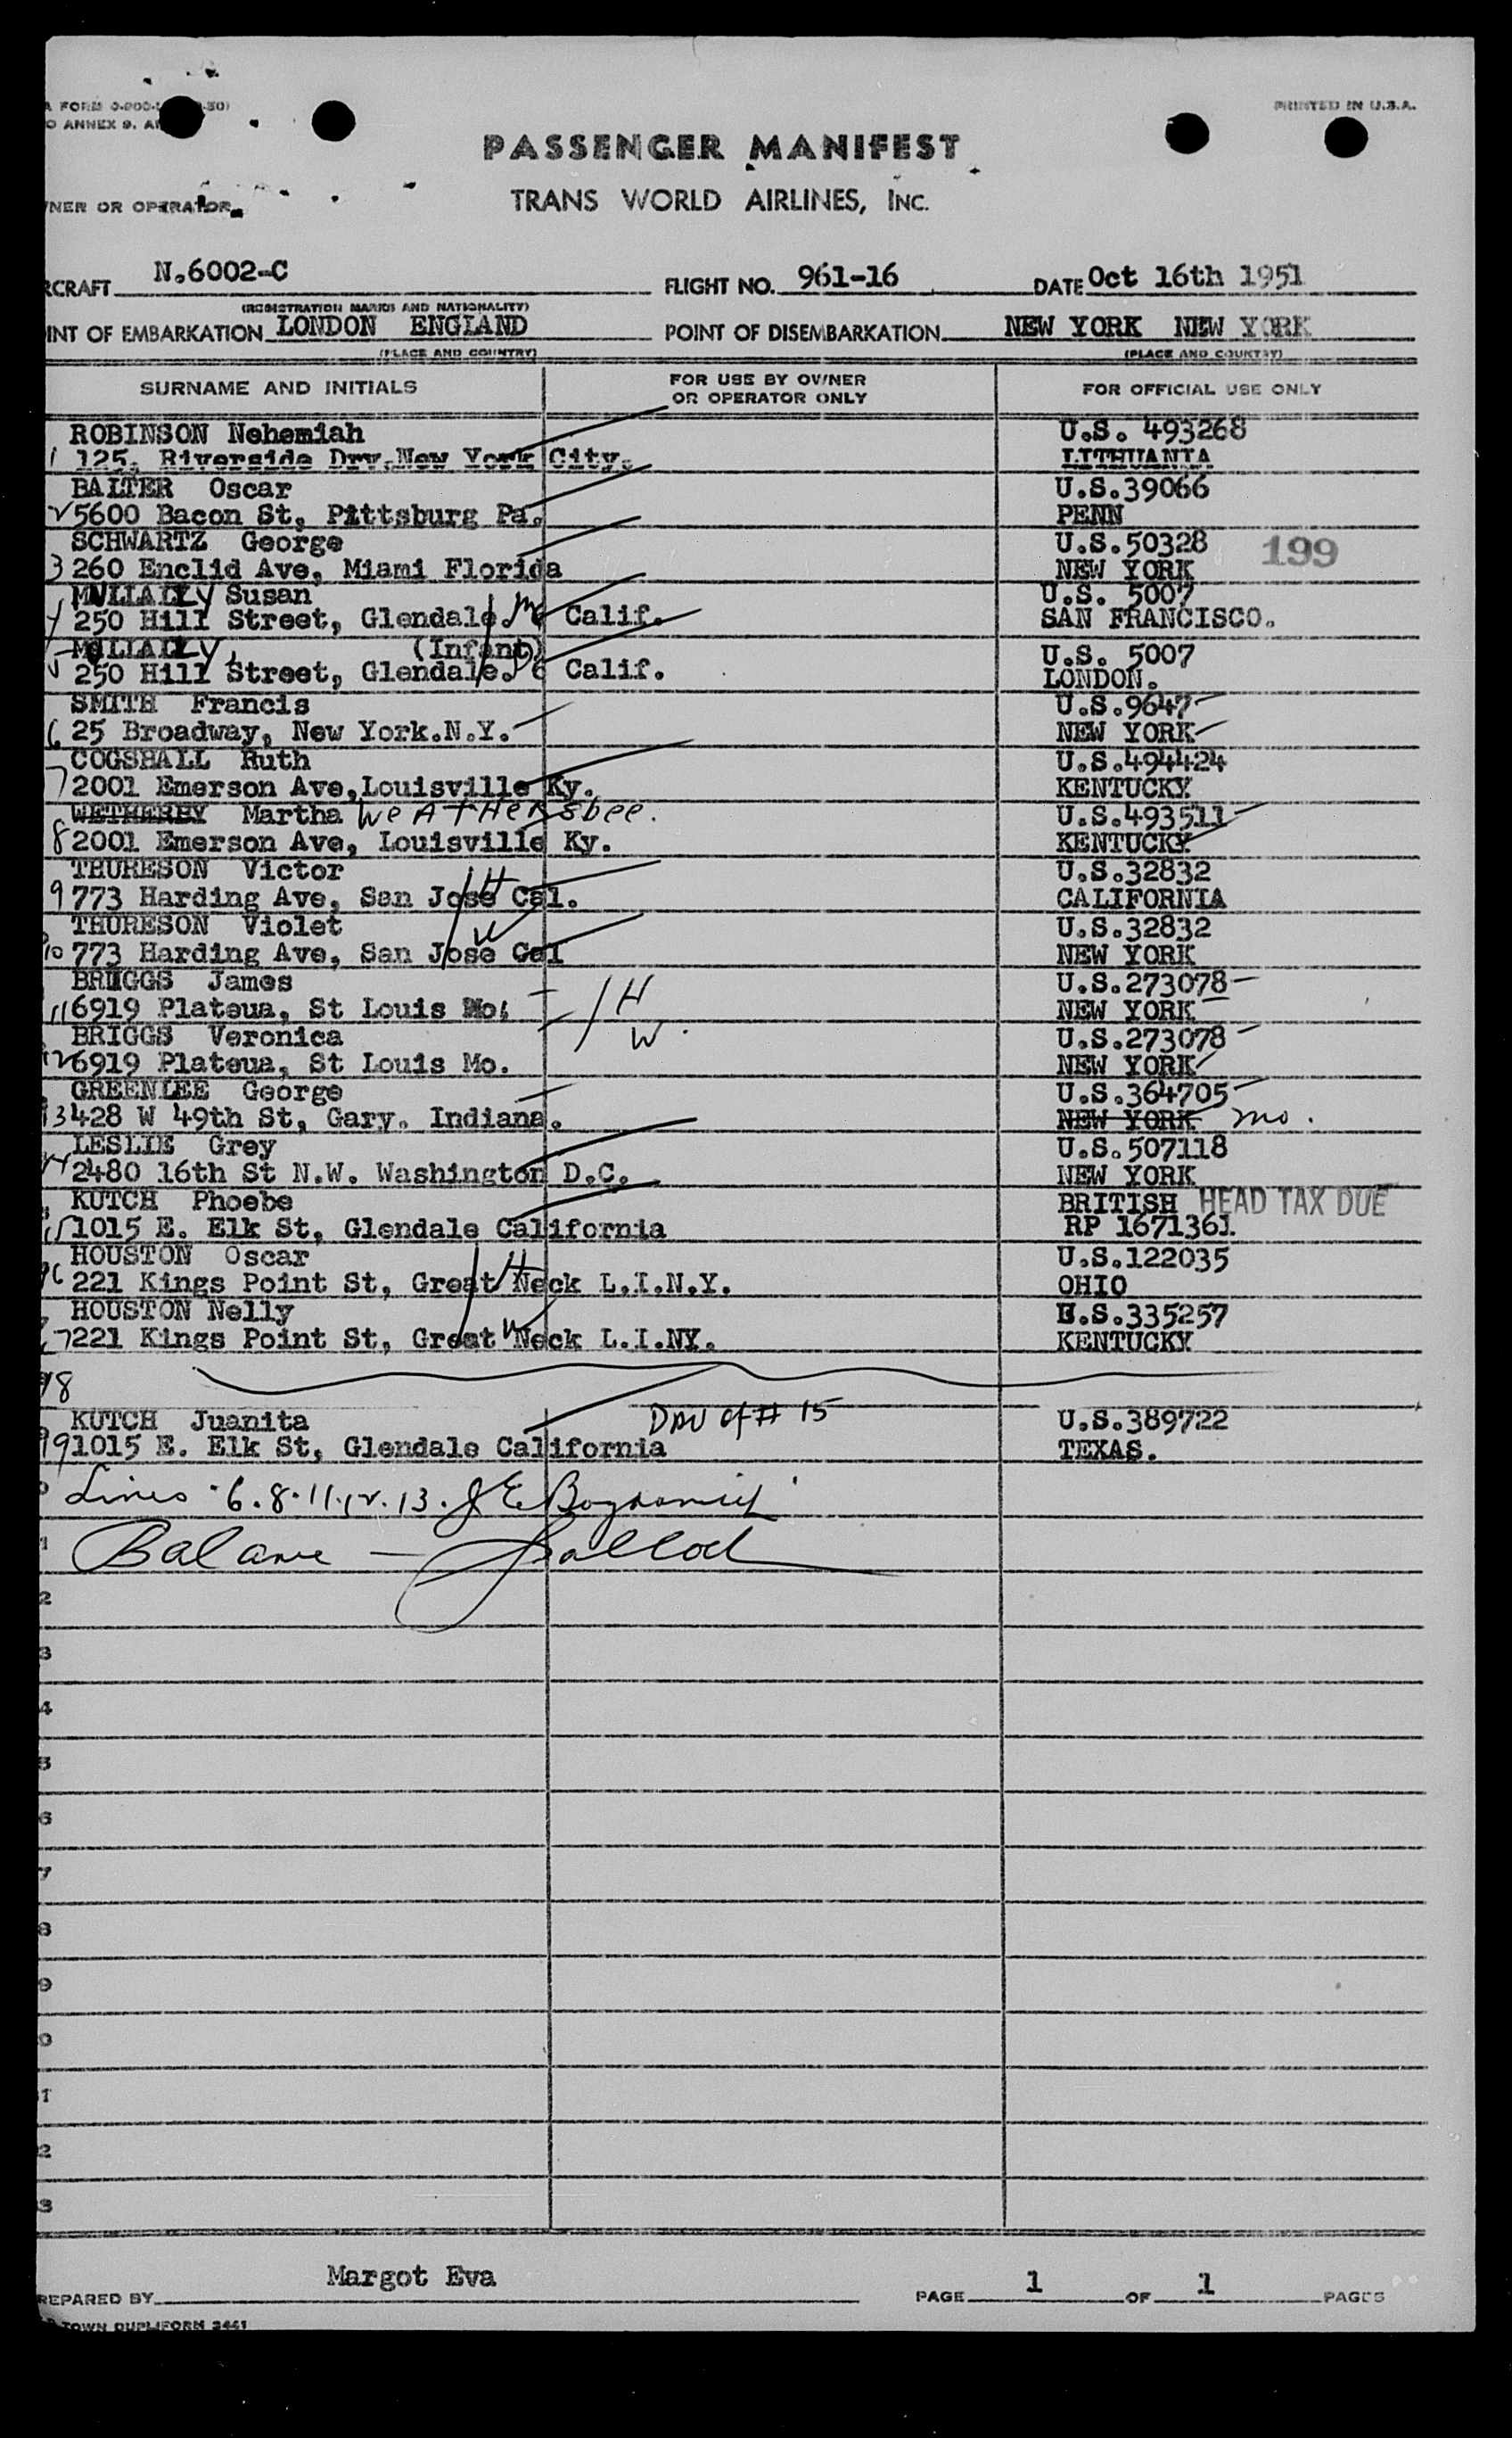 PRINTED IN U.S.A.
O ANNEX 9.
PASSENGER MANIFEST
TRANS WORLD AIRLINES, INC.
NER OR OPERATOR
RCRAFT N.6002-C FLIGHT NO. 961-16 DATE Oct 16th 1951
(REGISTRATION MARKS AND NATIONALITY)
INT OF EMBARKATION LONDON ENGLAND POINT OF DISEMBARKATION NEW YORK NEW YORK
(PLACE AND COUNTRY) (PLACE AND COUNTRY)
SURNAME AND INITIALS FOR USE BY OWNER OR OPERATOR ONLY FOR OFFICIAL USE ONLY
ROBINSON Nehemiah U.S. 493268
1 125, Riverside Drv.New York City. LITHUANIA
BALTER Oscar U.S.39066
2 5600 Bacon St, Pittsburg Pa. PENN
SCHWARTZ George U.S.50328 199
3 260 Enclid Ave, Miami Florida NEW YORK
MULLALLY Susan U.S. 5007
4 250 Hill Street, Glendale. Calif. SAN FRANCISCO.
MULLALLY, (Infant) U.S. 5007
5 250 Hill Street, Glendale. Calif. LONDON.
SMITH Francis U.S.9647
6 25 Broadway, New York.N.Y. NEW YORK
COGSHALL Ruth U.S.494424
7 2001 Emerson Ave,Louisville Ky. KENTUCKY
WETHERBY Martha WeATHeRsbee. U.S.493511
8 2001 Emerson Ave, Louisville Ky. KENTUCKY
THURESON Victor U.S.32832
9 773 Harding Ave, San Jose Cal. H CALIFORNIA
THURESON Violet U.S.32832
10 773 Harding Ave, San Jose Cal W NEW YORK
BRIGGS James U.S.273078
11 6919 Plateua, St Louis Mo. H NEW YORK
BRIGGS Veronica W. U.S.273078
12 6919 Plateua, St Louis Mo. NEW YORK
GREENLEE George U.S.364705
13 428 W 49th St, Gary. Indiana. NEW YORK mo.
LESLIE Grey U.S.507118
14 2480 16th St N.W. Washington D.C. NEW YORK
KUTCH Phoebe BRITISH HEAD TAX DUE
15 1015 E. Elk St, Glendale California RP 1671361
HOUSTON Oscar U.S.122035
16 221 Kings Point St, Great Neck L.I.N.Y. H OHIO
HOUSTON Nelly U.S.335257
17 221 Kings Point St, Great Neck L.I.NY. W KENTUCKY
18
KUTCH Juanita DAU of # 15 U.S.389722
19 1015 E. Elk St, Glendale California TEXAS.
Lines 6.8.11.12.13. J E
Balance —
2
3
4
5
6
7
8
9
0
1
2
3
REPARED BY Margot Eva PAGE 1 OF 1 PAGES
TOWN DUPLIFORM 2441